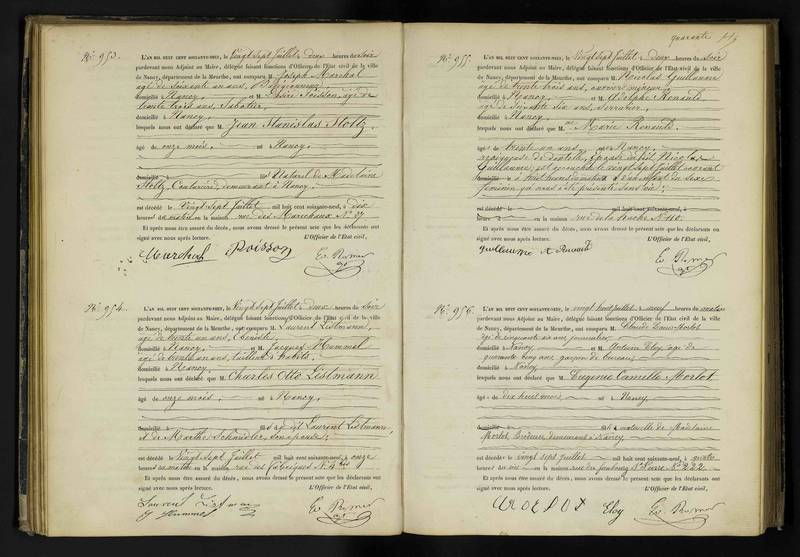 No. 953.
L'AN MIL HUIT CENT SOIXANTE-NEUF, le Vingt Sept Juillet à deux heures du Soir
pardevant nous Adjoint au Maire, délégué faisant fonctions d'Officier de l'État civil de la ville
de Nancy, département de la Meurthe, ont comparu M. Joseph Marchal
âgé de Soixante un ans,
domicilié à Nancy, et M. Poisson, âgé de
trente trois ans, Sabotier,
domicilié à Nancy,
lesquels nous ont déclaré que M. Jean Stanislas Stoltz,
âgé de onze mois, né à Nancy,
domicilié à fils Naturel de Madelaine
Stoltz, Couturière, demeurant à Nancy,
est décédé le Vingt Sept Juillet mil huit cent soixante-neuf, à dix
heures du matin en la maison rue des Maréchaux No. 27
Et après nous être assuré du décès, nous avons dressé le présent acte que les déclarants ont
signé avec nous après lecture. L'Officier de l'État civil,
Marchal Poisson
No. 954.
L'AN MIL HUIT CENT SOIXANTE-NEUF, le Vingt Sept Juillet à deux heures du Soir
pardevant nous Adjoint au Maire, délégué faisant fonctions d'Officier de l'État civil de la ville
de Nancy, département de la Meurthe, ont comparu M. Laurent Listmann,
âgé de trente un ans, Ebéniste,
domicilié à Nancy, et M. Jacques Hummel
âgé de trente un ans, tailleur d'habits,
domicilié à Nancy,
lesquels nous ont déclaré que M. Charles Otto Listmann
âgé de onze mois, né à Nancy,
domicilié à fils dudit Laurent Listmann,
et de Marthe Schindler, son épouse;
est décédé le Vingt Sept Juillet mil huit cent soixante-neuf, à onze
heures du matin en la maison rue des fabriques No. 4 bis
Et après nous être assuré du décès, nous avons dressé le présent acte que les déclarants ont
signé avec nous après lecture. L'Officier de l'État civil,
Laurent Listmann
J Hummel
No. 955.
L'AN MIL HUIT CENT SOIXANTE-NEUF, le Vingt Sept Juillet à deux heures du Soir
pardevant nous Adjoint au Maire, délégué faisant fonctions d'Officier de l'État civil de la ville
de Nancy, département de la Meurthe, ont comparu M. Nicolas Guillaume
âgé de trente trois ans, ouvrier
domicilié à Nancy, et M. Adolphe Renault,
âgé de Soixante six ans, Serrurier,
domicilié à Nancy,
lesquels nous ont déclaré que Mme Marie Renault,
âgé de trente un ans, né à Nancy,
épouse dudit Nicolas
Guillaume, est accouchée le vingt Sept Juillet courant
à huit heures du matin d'un enfant du Sexe
féminin qu'il nous a été présenté Sans vie;
est décédé le mil huit cent soixante-neuf, à
heures du en la maison rue de la hache No. 110.
Et après nous être assuré du décès, nous avons dressé le présent acte que les déclarants ont
signé avec nous après lecture. L'Officier de l'État civil,
guillaume A Renault
No. 956.
L'AN MIL HUIT CENT SOIXANTE-NEUF, le vingt huit Juillet à neuf heures du matin
pardevant nous Adjoint au Maire, délégué faisant fonctions d'Officier de l'État civil de la ville
de Nancy, département de la Meurthe, ont comparu M. Claude Louis Morlot
âgé de cinquante six ans journalier
domicilié à Nancy et M. Antoine Eloy, âgé de
quarante cinq ans garçon de bureau
domicilié à Nancy,
lesquels nous ont déclaré que M. Eugénie Camille Morlot
âgé de dix huit mois né à Nancy,
domicilié à fille naturelle de Madelaine
Morlot, Brodeuse demeurant à Nancy
est décédé le vingt sept juillet mil huit cent soixante-neuf, à quatre
heures du soir en la maison rue du faubourg St Pierre No. 222
Et après nous être assuré du décès, nous avons dressé le présent acte que les déclarants ont
signé avec nous après lecture. L'Officier de l'État civil,
Eloy